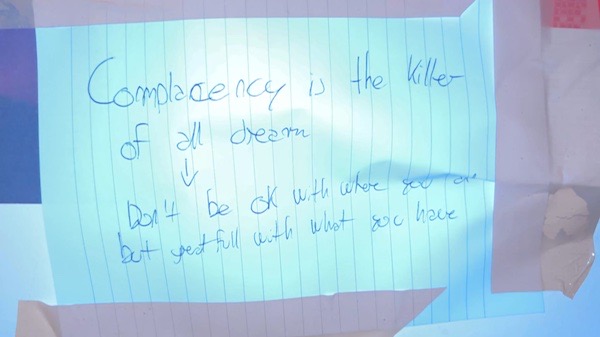 Complacency is the Killer
of all dream
↓
Don't be OK with where you are
but greatfull with what you have